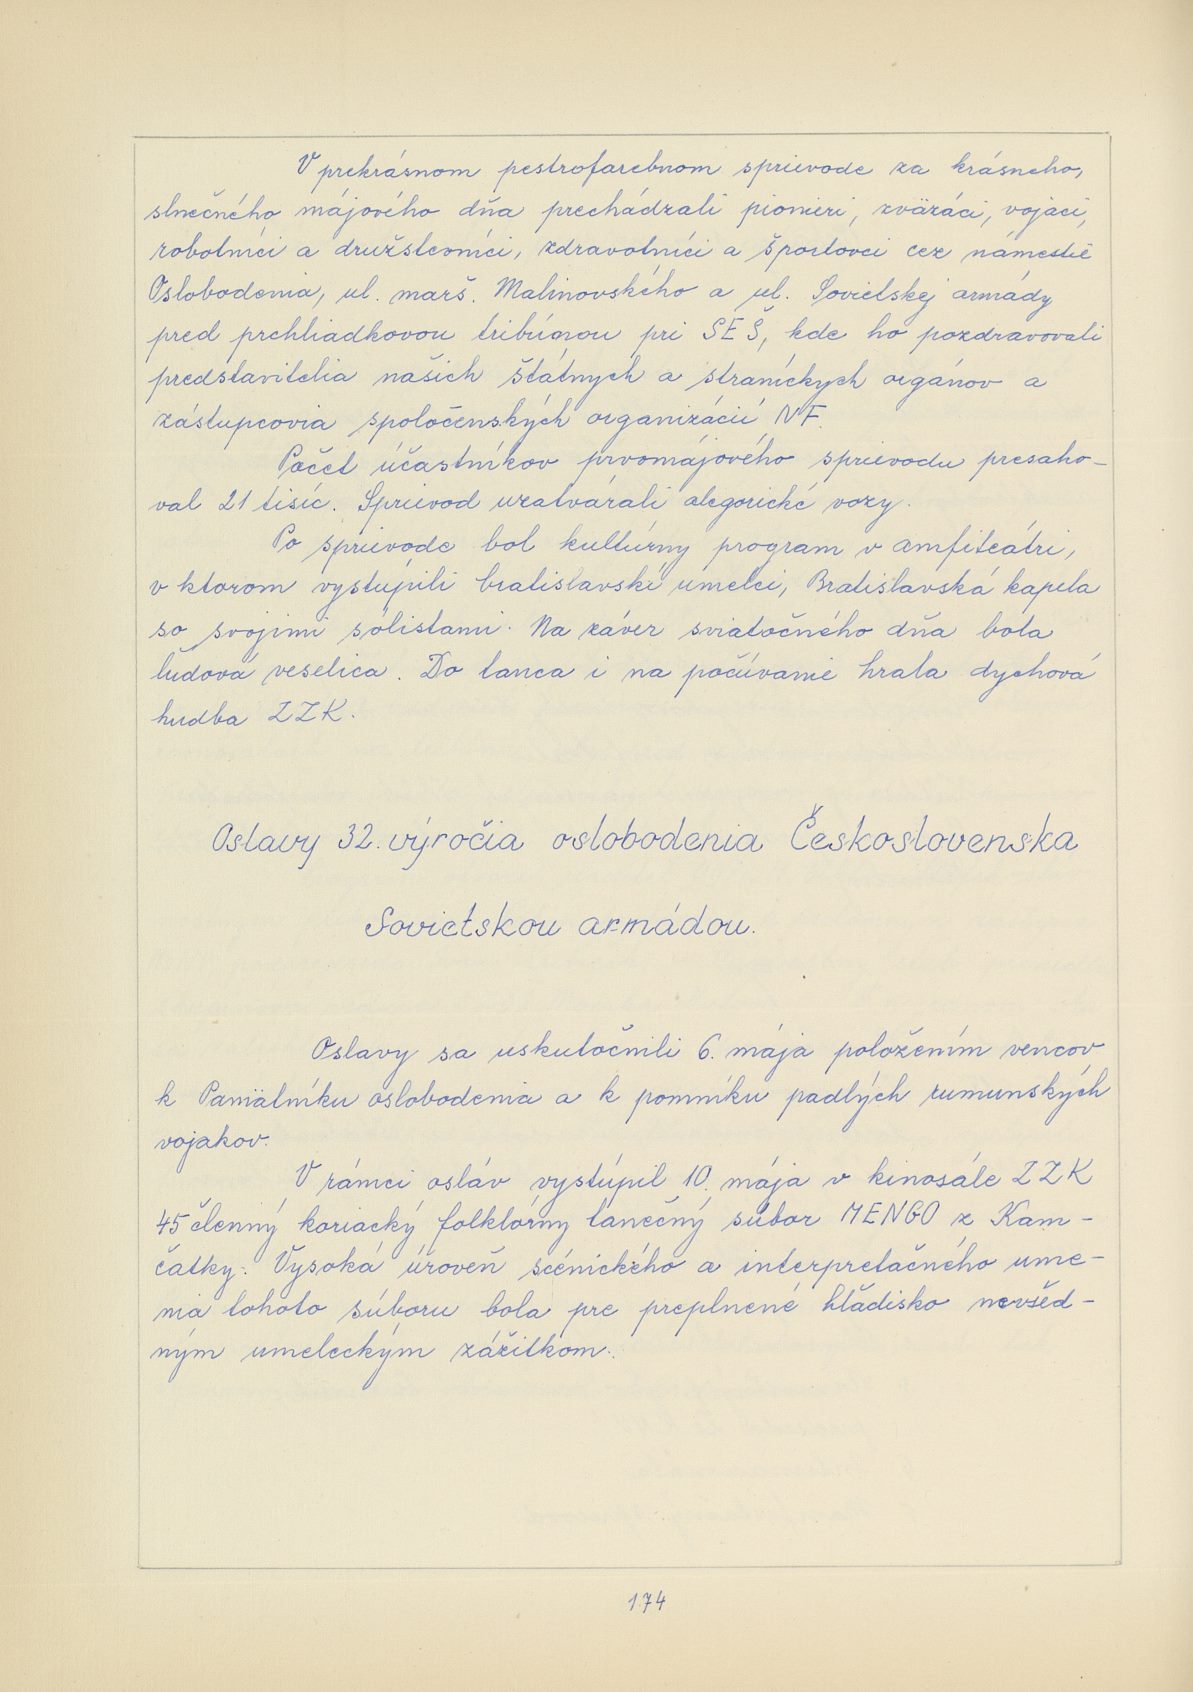 V prekrásnom pestrofarebnom sprievode za krásneho,
slnečného májového dňa prechádzali pionieri, zväzáci, vojaci,
robotníci a družstevníci, zdravotníci a športovci cez námestie
Oslobodenia, ul. marš. Malinovského a ul. Sovietskej armády
pred prehliadkovou tribúnou pri SEŠ, kde ho pozdravovali
predstavitelia našich štátnych a straníckych orgánov a
zástupcovia spoločenských organizácií NF.
Počet účastníkov prvomájového sprievodu presaho-
val 21 tisíc. Sprievod uzatvárali alegorické vozy.
Po sprievode bol kultúrny program v amfiteátri,
v ktorom vystúpili bratislavskí umelci, Bratislavská kapela
so svojimi sólistami. Na záver sviatočného dňa bola
ľudová veselica. Do tanca i na počúvanie hrala dychová
hudba ZZK.
Oslavy 32. výročia oslobodenia Československa
Sovietskou armádou.
Oslavy sa uskutočnili 6. mája položením vencov
k Pamätníku oslobodenia a k pomníku padlých rumunských
vojakov.
V rámci osláv vystúpil 10. mája v kinosále ZZK
45 členný koriacký folklórny tanečný súbor MENGO z Kam-
čatky. Vysoká úroveň scénického a interpretačného ume-
nia tohoto súboru bola pre preplnené hľadisko nevšed-
ným umeleckým zážitkom.
174